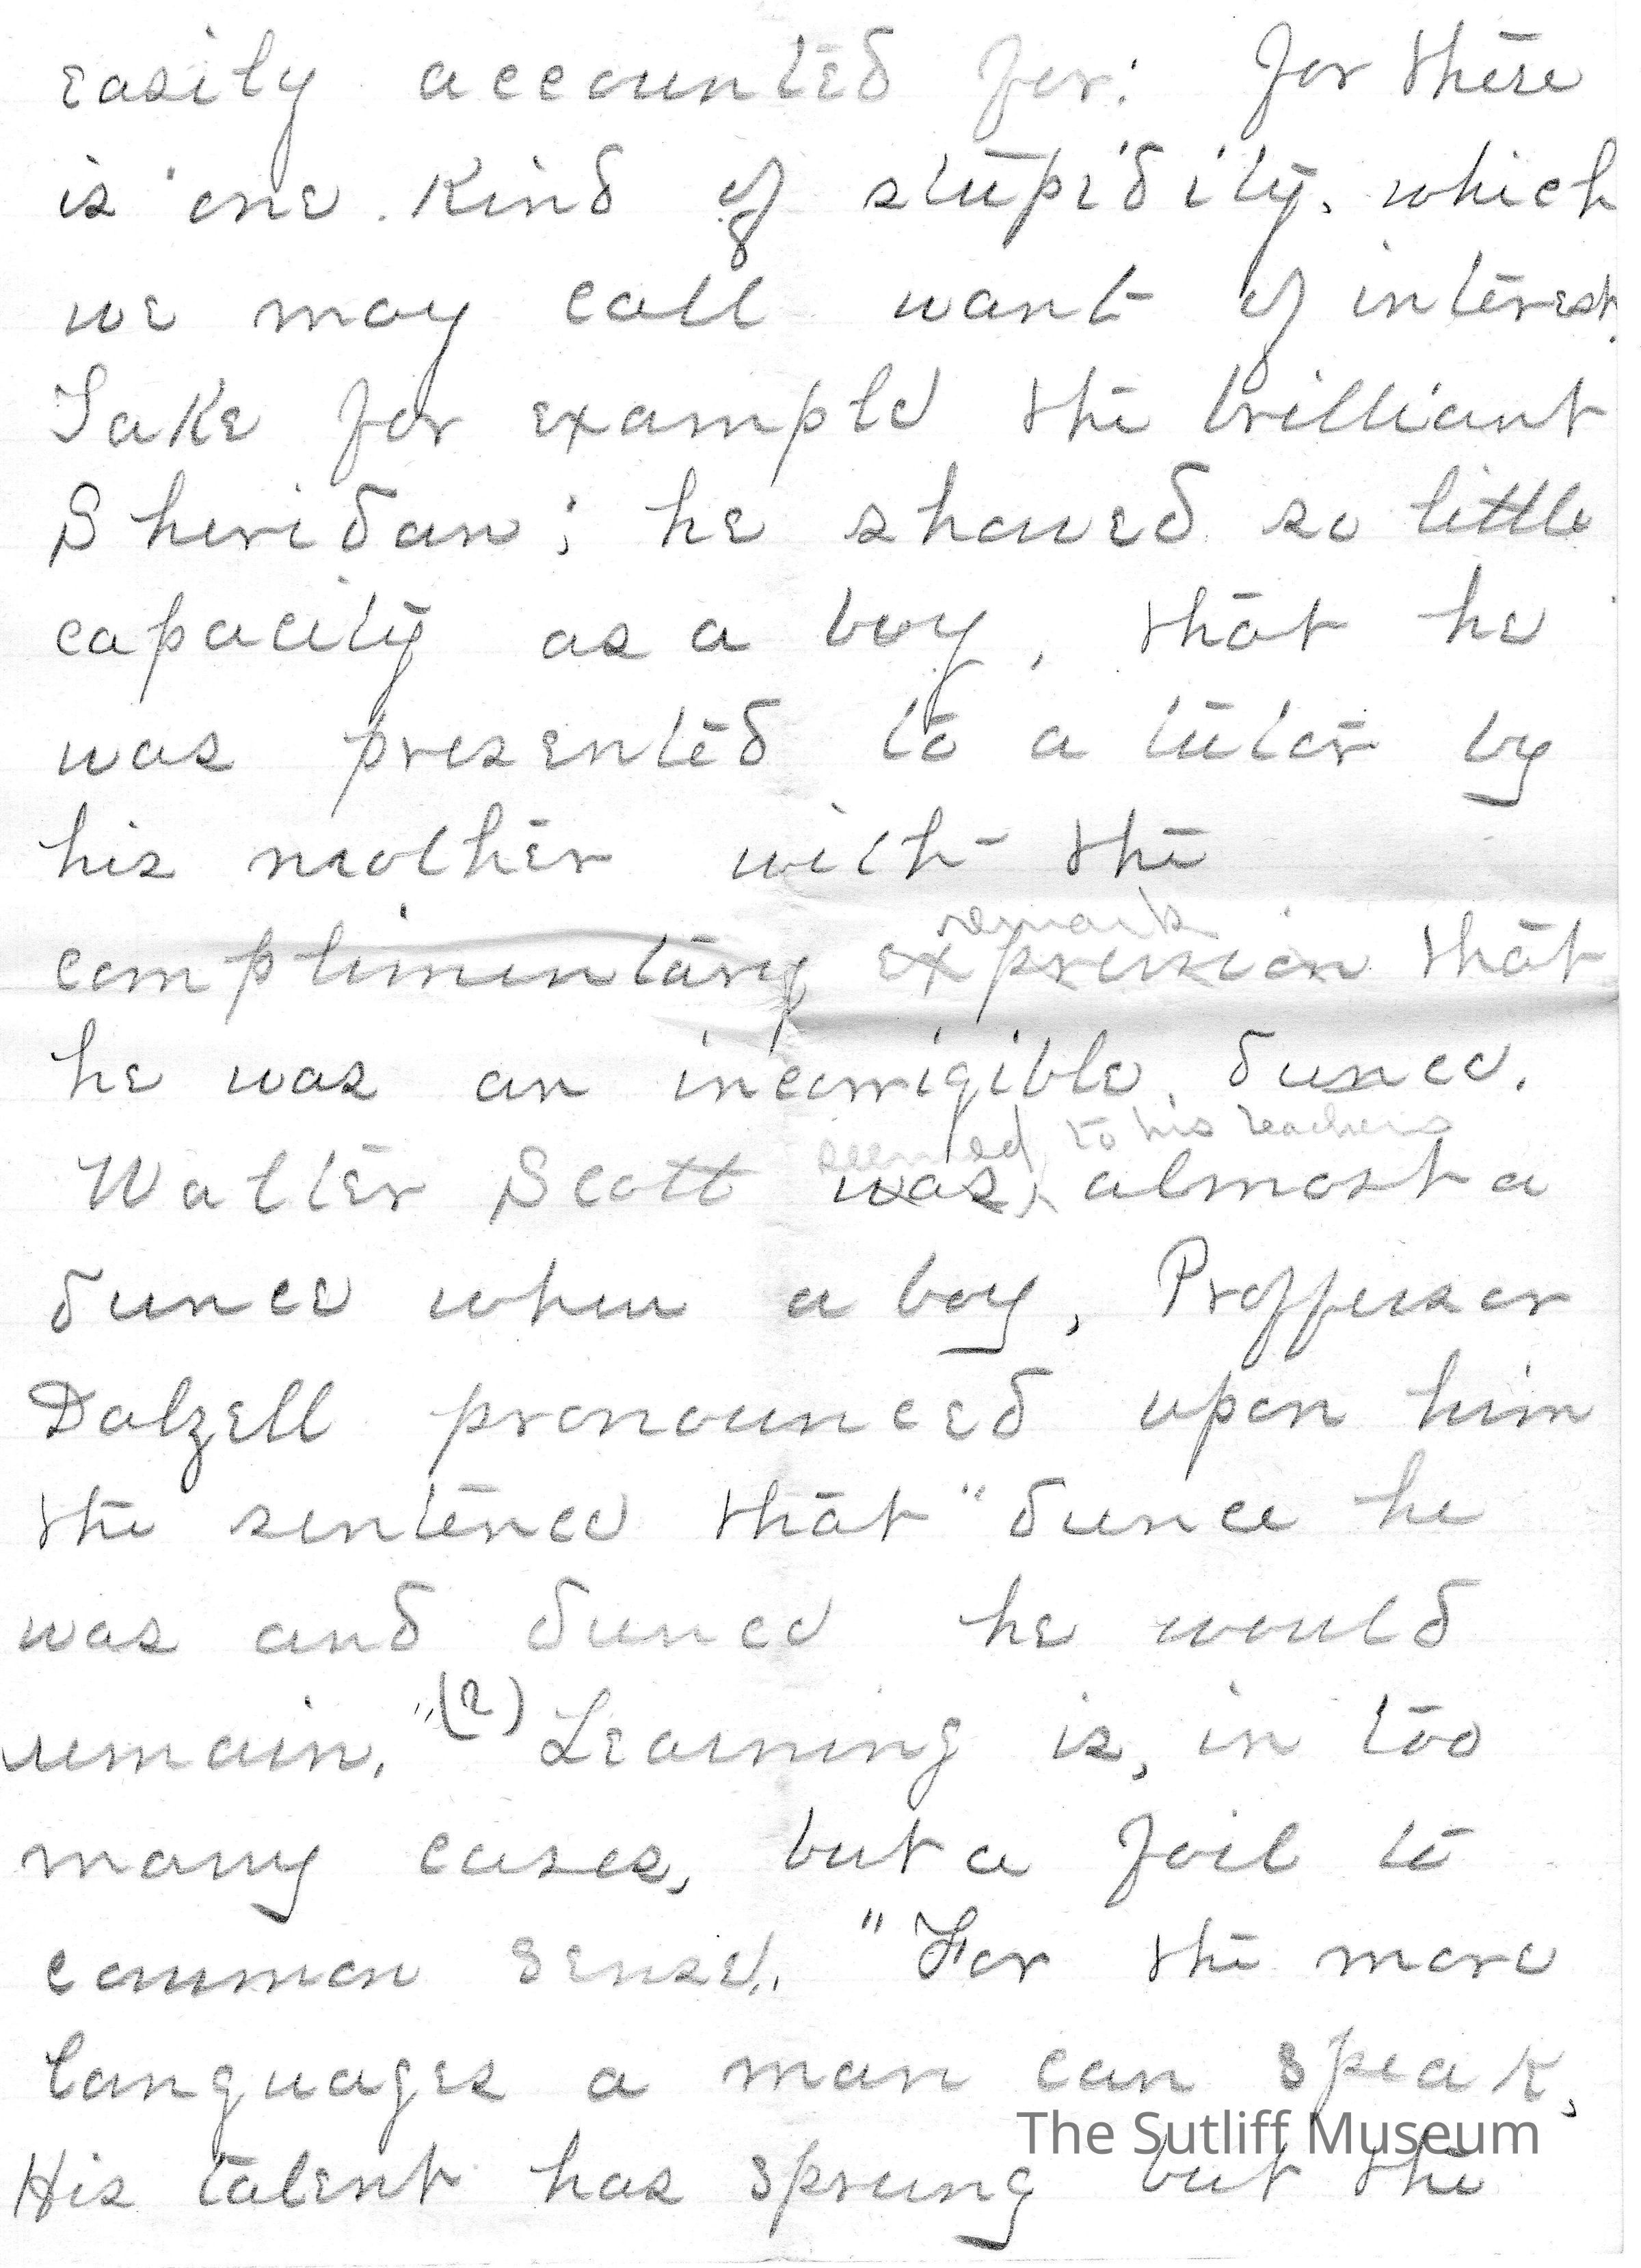 easily accounted for: for there
is one kind of stupidity, which
we may call want of interest.
Take for example the brilliant
Sheridan; he showed so little
capacity as a boy, that he
was presented to a tutor by
his mother with the
remark
complimentary expression that
he was an incorrigible dunce.
seemed to his teachers
Walter Scott was almost a
dunce when a boy, Proffessor
Dalzell pronounced upon him
the sentence that "dunce he
was and dunce he would
remain." (2) Learning is, in too
many cases, but a foil to
common sense. "For the more
languages a man can speak,
The Sutliff Museum
His talent has sprung but the